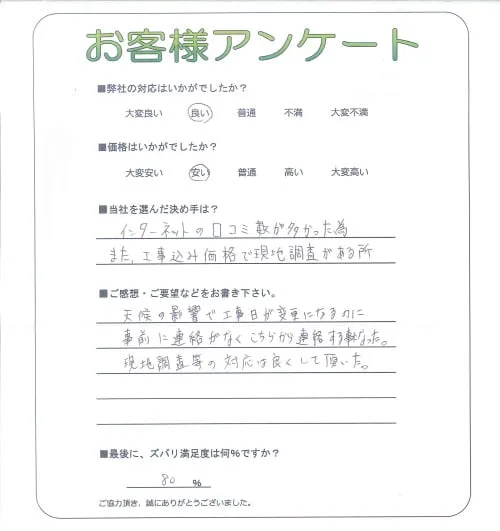 お客様アンケート
■弊社の対応はいかがでしたか？
大変良い 良い 普通 不満 大変不満
■価格はいかがでしたか？
大変安い 安い 普通 高い 大変高い
■当社を選んだ決め手は？
インターネットの口コミ数が多かった為
また、工事込み価格で現地調査がある所
■ご感想・ご要望などをお書き下さい。
天候の影響で工事日が変更になるのに
事前に連絡がなくこちらから連絡する事となった。
現地調査等の対応は良くして頂いた。
■最後に、ズバリ満足度は何%ですか？
80 %
ご協力頂き、誠にありがとうございました。